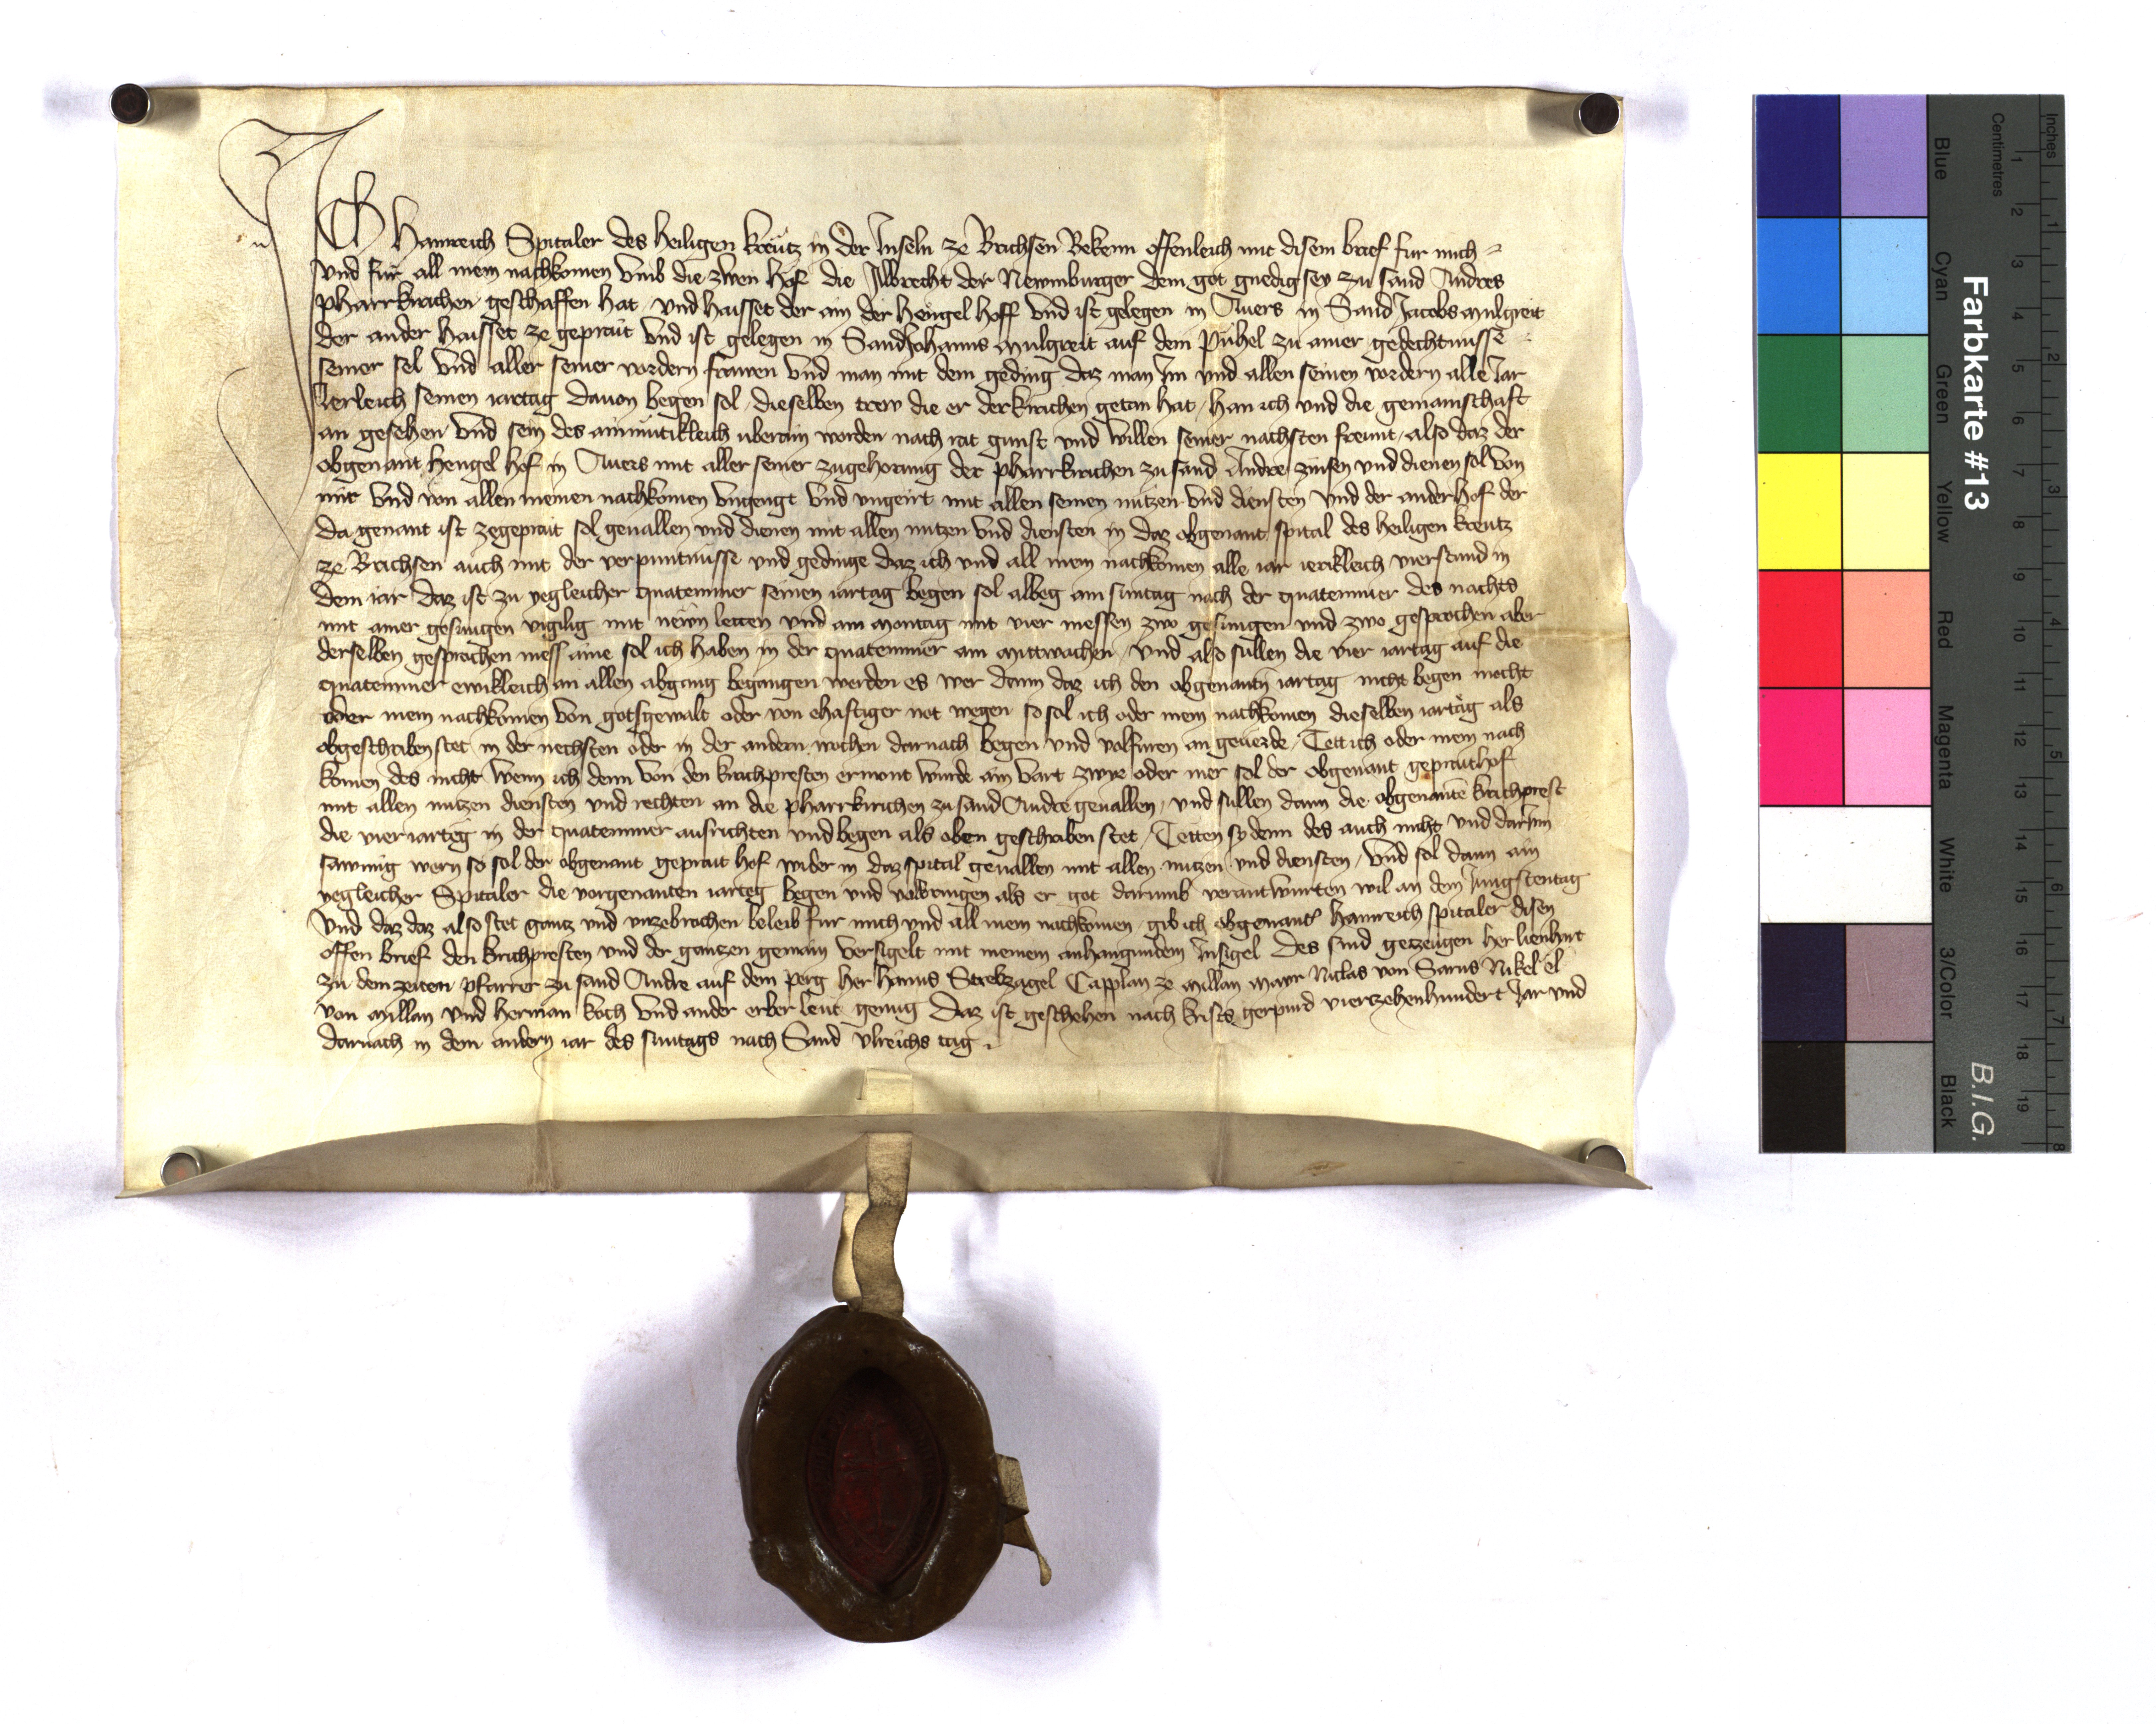 ICH Hainreich Spitaler des heiligen kreutz in der Inseln ze Brichsen Bekenn offenleich mit disem brief fur mich
vnd für all mein nachkomen vmb die zwen hof die Albrecht der Newmburger dem got gnedig sey zu sand Andres
pharrkirchen geschaffen hat vnd haisset der ain der Hengel hoff vnd ist gelegen in Auers in Sand Jacobs mulgreit
der ander haisset ze geprait vnd ist gelegen in Sand Johanns mulgreit auf dem Pühel zu ainer gedechtnusse
seiner sel vnd aller seiner vordern frawen vnd man mit dem geding daz man Im vnd allen seinen vordern alle Jar
Jerleich seinen iartag dauon begen sol / dieselben trew die er der kirchen getan hat / han ich vnd die gemainschaft
an gesehen vnd sein des ainmutikleich uberain worden nach rat gunst vnd willen seiner nachsten freunt / also daz der
obgenant hengel hof in Auers mit aller seiner zugehorung der pharrkirchen zu sand Andre zinsen vnd dienen sol von
mir vnd von allen meinen nachkomen vngeengt vnd vngeirt mit allen seinen nützen vnd diensten vnd der ander hof der
da genant ist zegeprait sol geuallen vnd dienen mit allen nutzen vnd diensten in daz obgenant spital des heiligen kreutz
ze Brichsen auch mit der verpuntnusse vnd gedinge daz ich vnd all mein nachkomen alle iar ierikleich vierstund in
dem iar daz ist zu yegleicher quatemmer seinen iartag begen sol albeg am suntag nach der quatemmer des nachts
mit ainer gesungen vigilig mit newn letzen vnd am montag mit vier messen zwo gesungen vnd zwo gesprochen aber
derselben gesprochen mess aine sol ich haben in der quatemmer am mittwochen / vnd also sullen die vier iartag auf die
quatemmer ewikleich an allen abgang begangen werden es wer dann daz ich den obgenanten iartag nicht begen mocht
oder mein nachkomen von gotsgewalt oder von ehaftiger not wegen so sol ich oder mein nachkomen dieselben iartäg als
obgeschriben stet in der nechsten oder in der andern wochen darnach begen vnd volfuren an geuerde / Tett ich oder mein nach
komen des nicht wenn ich denn von den kirchpresten ermont wurde ain vart zwir oder mer sol der obgenant geprait hof
mit allen nutzen diensten vnd rechten an die pharrkirchen zu sand Andre geuallen / vnd sullen dann die obgenante kirchprest
die vier iarteg in der quatemmer ausrichten vnd begen als oben geschriben stet / Tetten sy denn des auch nicht vnd darInn
sawmig wern so sol der obgenant geprait hof wider in daz spital geuallen mit allen nutzen vnd diensten / vnd sol dann ain
yegleicher Spitaler die vorgenanten iarteg begen vnd volbringen als er got darumb verantwurten wil an dem Jungstentag
Vnd daz daz also stet gantz vnd vnzebrochen beleib fur mich vnd all mein nachkomen / gib ich obgenanter Hainreich spitaler disen
offen brief den kirchpresten vnd der ganzen gemain versigelt mit meinem anhangundem Insigel Des sind getzeugen her lienhart
zu dem zeiten pfarrer zu sand Andre auf dem perg her Hanns Strelzagel Capplan ze Millan mayr Niclas von Sarns Nikel el
von Millan vnd Herman koch vnd ander erber leut genug Daz ist geschehen nach krists gerpurd vierzehenhundert Jar vnd
darnach in dem andern iar des suntags nach Sand vlreichs tag
Farbkarte #13
B.I.G.
Inches
Centimetres
1 2 3 4 5 6 7 8 9 10 11 12 13 14 15 16 17 18 19
1 2 3 4 5 6 7 8
Blue
Cyan
Green
Yellow
Red
Magenta
White
3/Color
Black